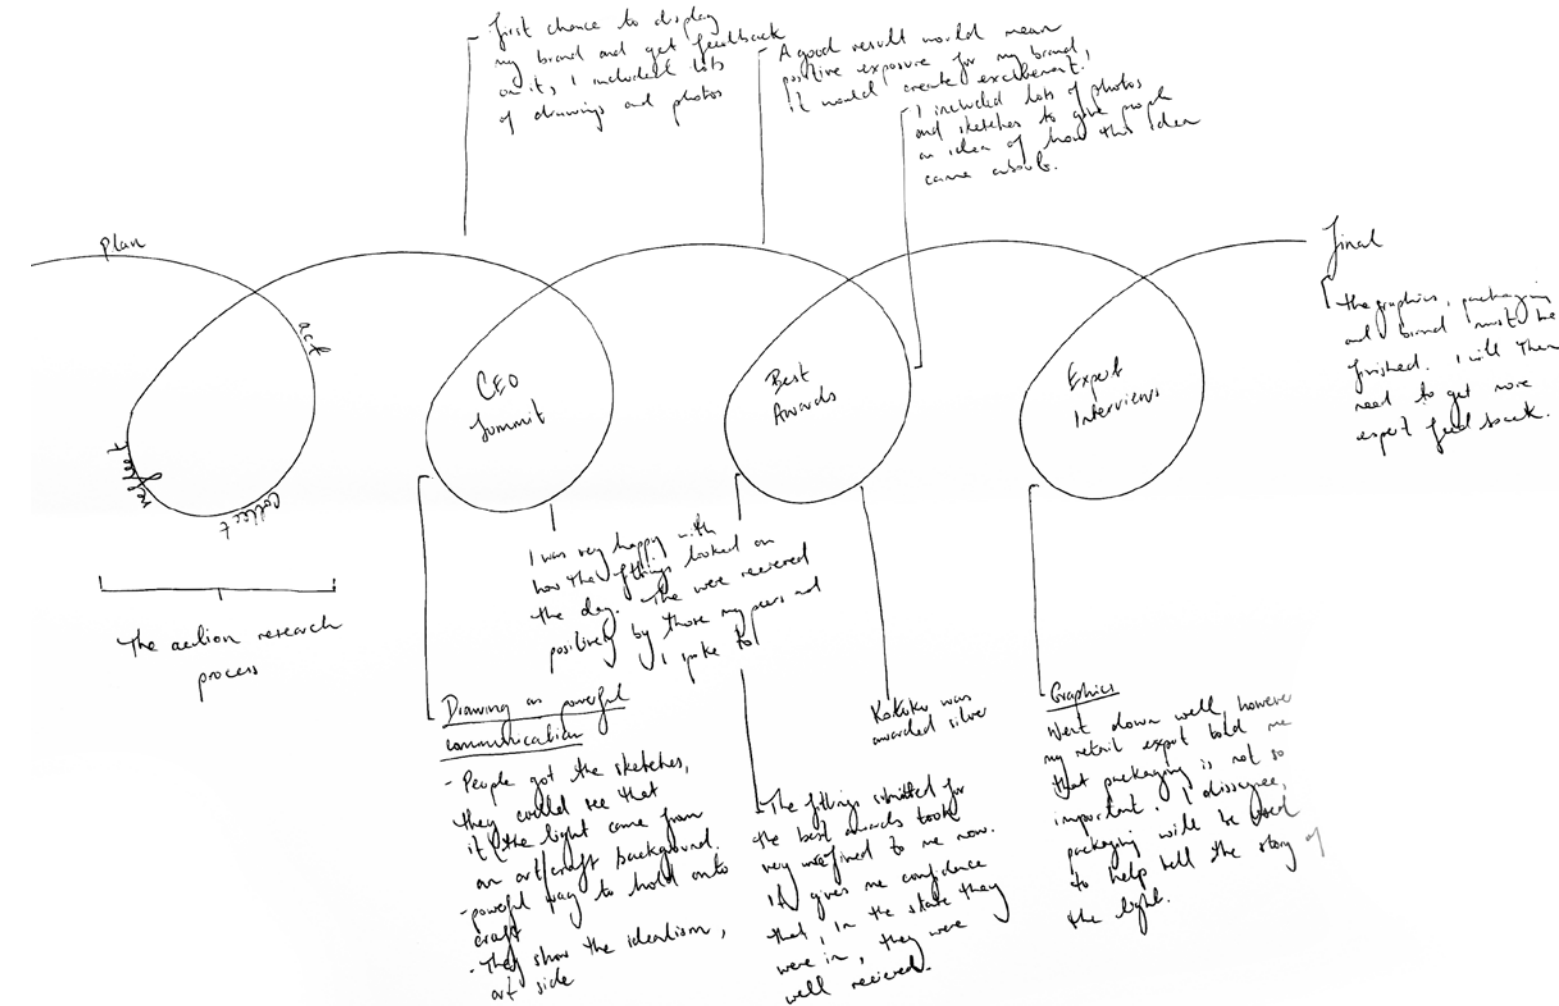 first chance to display
my brand and get feedback
on it, I included lots
of drawings and photos
A good result would mean
positive exposure for my brand,
it would create excitement.
I included lots of photos
and sketches to give people
an idea of how this idea
came about.
plan
act
collect
reflect
The action research
process
CEO
Summit
Best
Awards
Expert
Interviews
Final
the graphics, packaging
and brand must be
finished. I will then
need to get more
expert feed back.
I was very happy with
how the fittings looked on
the day. The were recieved
positively by those my peers and
I spoke to
Drawing as powerful
communication
- People got the sketches,
they could see that
it / the light came from
an art/craft background.
- powerful way to hold onto
craft
- They show the idealism,
art side
The fittings submitted for
the best awards took
very unrefined to me now.
It gives me confidence
that, in the state they
were in, they were
well recieved.
Kokoko was
awarded silver
Graphics
Went down well, however
my retail expert told me
that packaging is not so
important. I dissagree,
packaging will be used
to help tell the story of
the light.